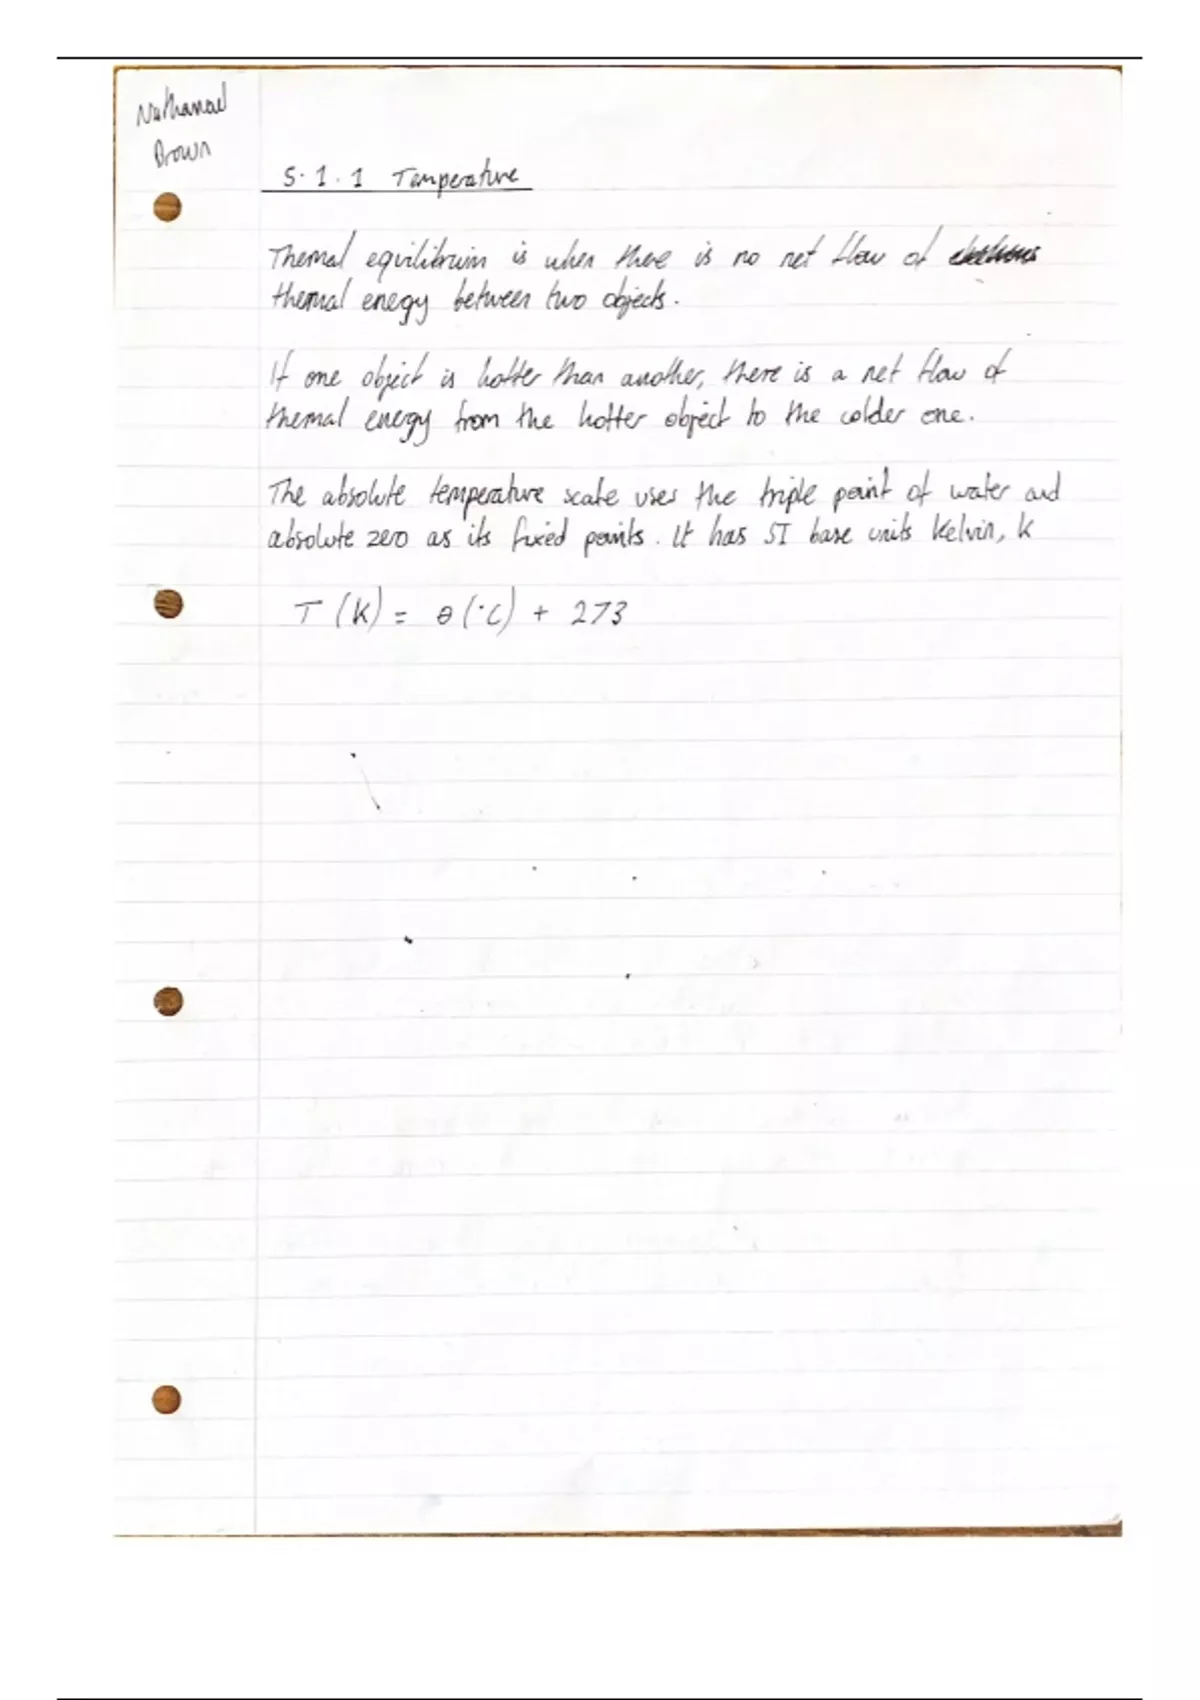 Nathanael
Brown
5.1.1 Temperature
Thermal equilibrium is when there is no net flow of
thermal energy between two objects.
If one object is hotter than another, there is a net flow of
thermal energy from the hotter object to the colder one.
The absolute temperature scale uses the triple point of water and
absolute zero as its fixed points. It has SI base units Kelvin, K
T (K) = θ (°C) + 273